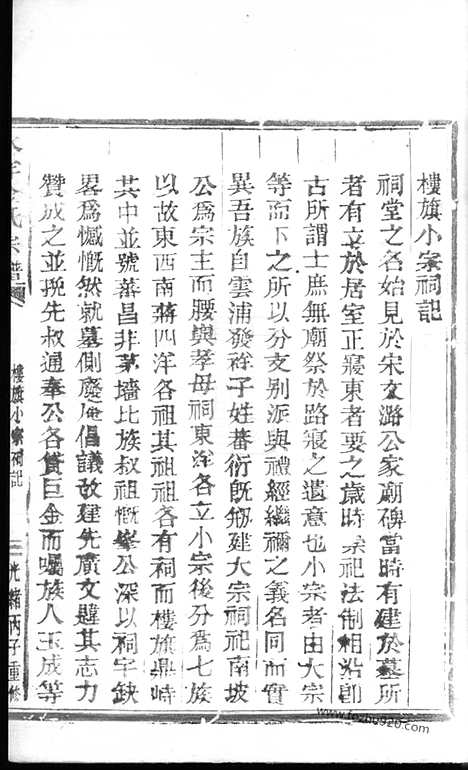 樓旗小宗祠記
祠堂之名始見於宋文潞公家廟碑當時有建於墓所
者有立於居室正寢東者要之歲時祭祀法制相沿卽
古所謂士庶無廟祭於路寢之遺意也小宗者由大宗
等而下之所以分支别派與禮經繼禰之義名同而實
異吾族自雲浦發祥子姓蕃衍旣刱建大宗祠祀南坡
公爲宗主而腰與孝母祠東洋各立小宗後分爲七族
以故東西南蔣四洋各祖其祖祖各有祠而樓旗鼎峙
其中並號蕃昌非茅墻比族叔祖慨峯公深以祠宇缺
畧爲憾慨然就墓側廢庵倡議故建先廣文韙其志力
贊成之並挽先叔通奉公各貲巨金而囑族人玉成等
氏宗譜
樓旗小宗祠記
光緒丙子重修
www.fozhu920.com